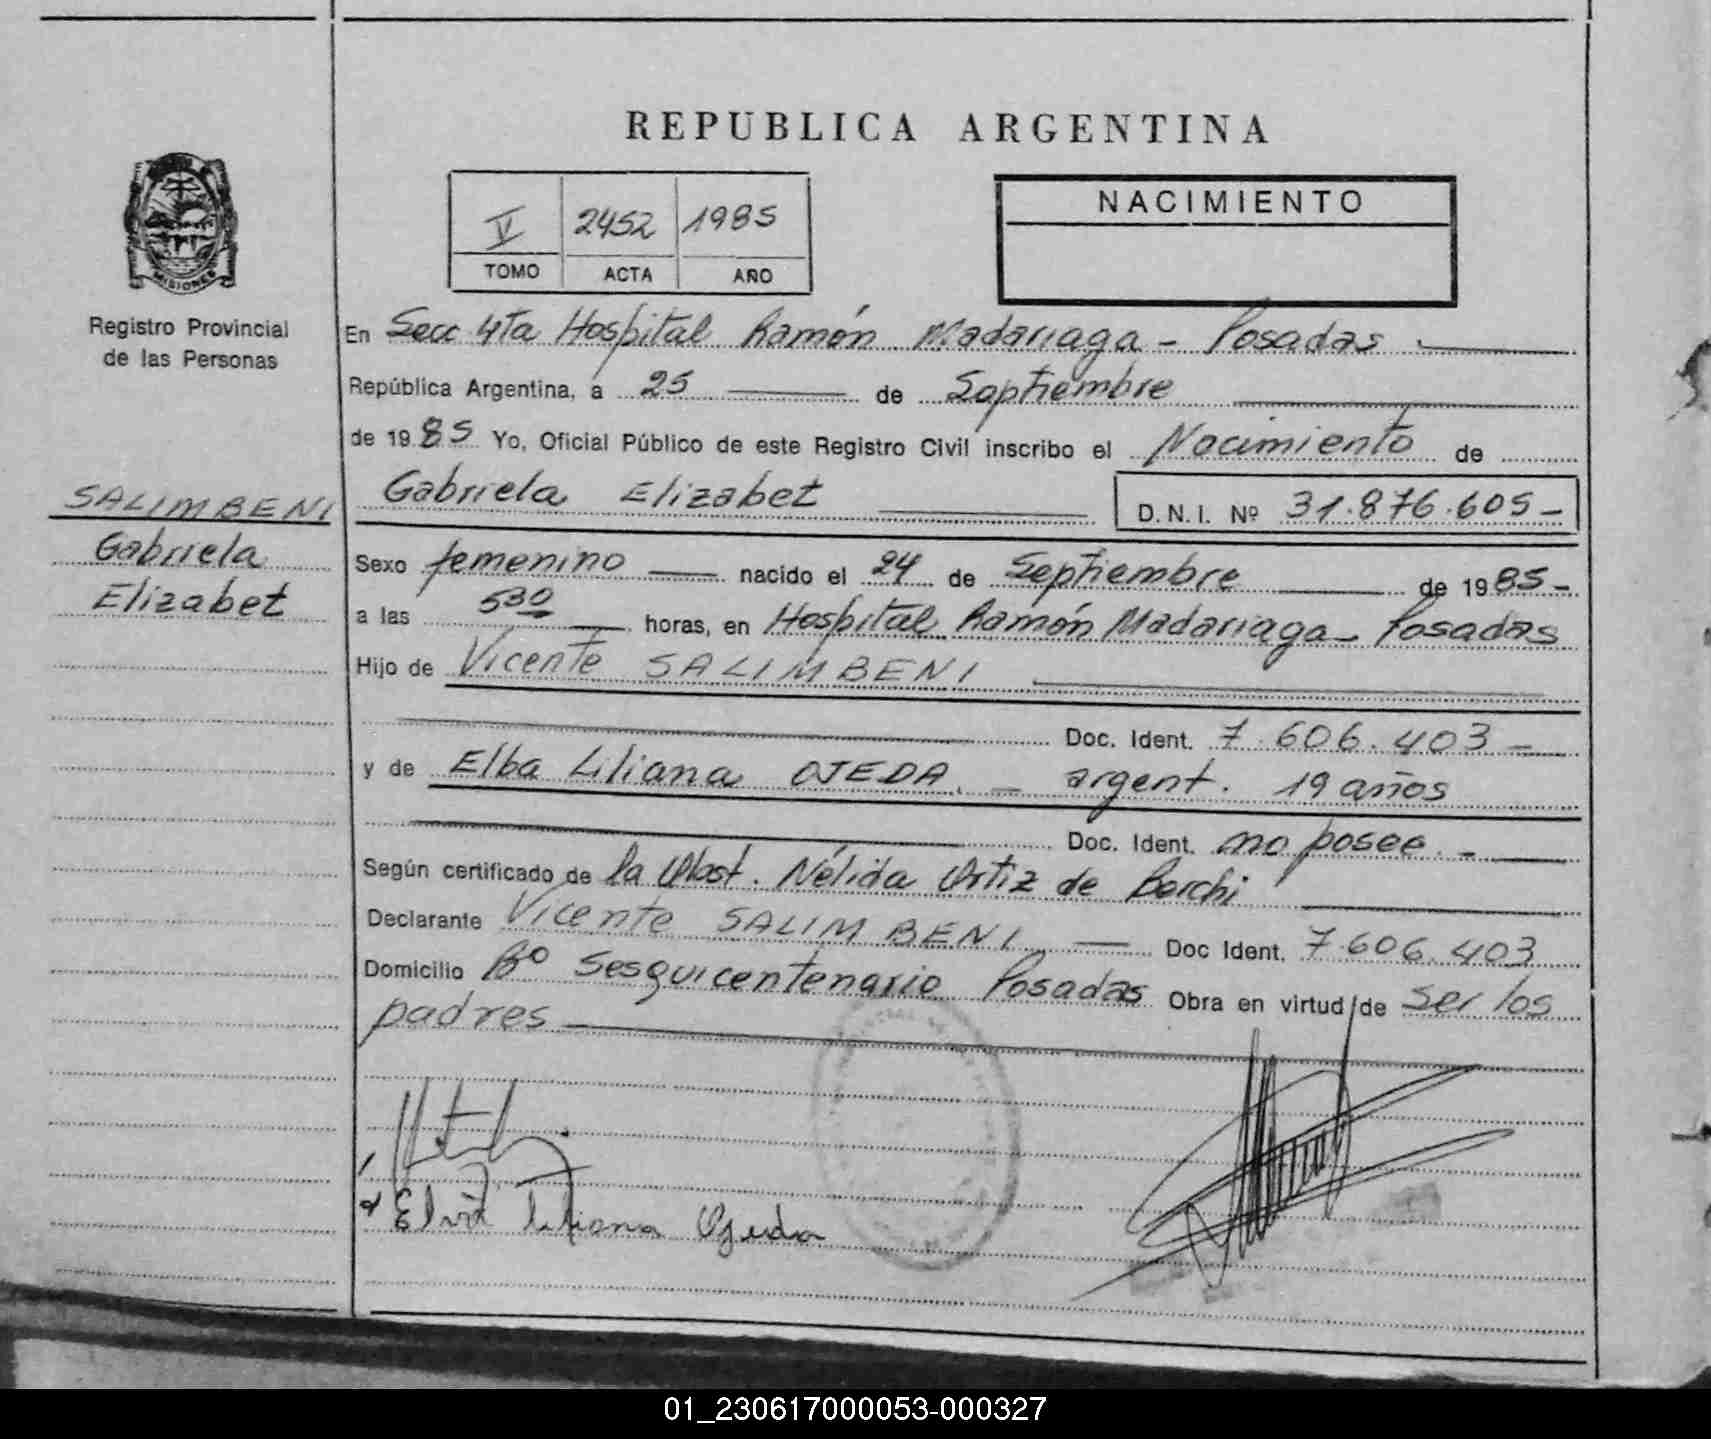 REPUBLICA ARGENTINA
MISIONES
Registro Provincial
de las Personas
V 2452 1985
TOMO ACTA AÑO
NACIMIENTO
En Secc 4ta Hospital Ramón Madariaga - Posadas
República Argentina, a 25 de Septiembre
de 1985 Yo, Oficial Público de este Registro Civil inscribo el Nacimiento de
Gabriela Elizabet D.N.I. Nº 31.876.605-
SALIMBENI
Gabriela
Elizabet
Sexo femenino nacido el 24 de Septiembre de 1985-
a las 530 horas, en Hospital Ramón Madariaga - Posadas
Hijo de Vicente SALIMBENI
Doc. Ident. 7.606.403-
y de Elba Liliana OJEDA. - argent. 19 años
Doc. Ident. no posee. -
Según certificado de la Obst. Nélida Ortiz de Berchi
Declarante Vicente SALIMBENI Doc Ident. 7.606.403
Domicilio Bº Sesquicentenario Posadas Obra en virtud de ser los
padres
Elva Liliana Ojeda
01_230617000053-000327